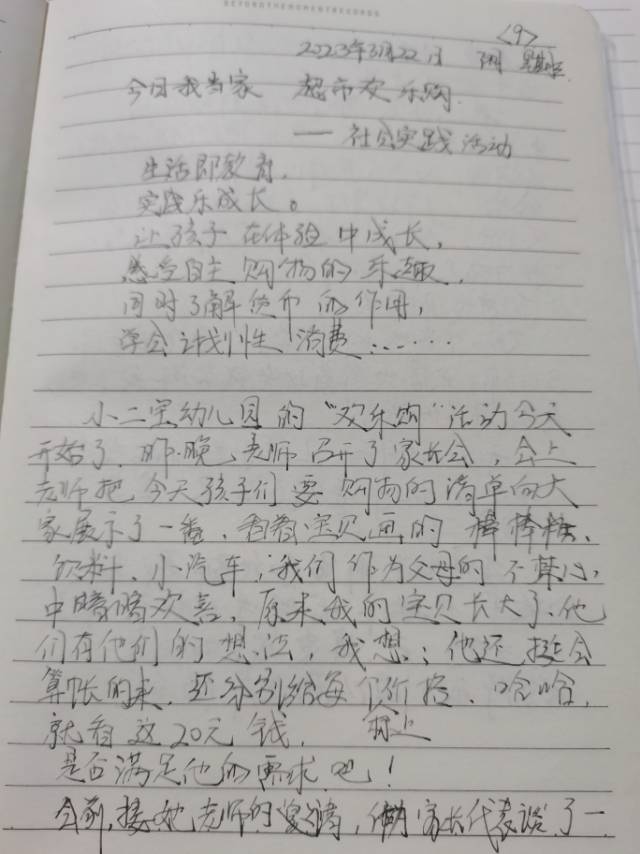 BEYONDTHEMOMENTRECORDS
<9>
2023年3月22日 阴 星期三
今日我当家 超市欢乐购
——社会实践活动
生活即教育,
实践乐成长。
让孩子在体验中成长,
感受自主购物的乐趣,
同时了解货币的作用,
学会计划性消费……
小二宝幼儿园的“欢乐购”活动今天
开始了,昨晚,老师召开了家长会,会上
老师把今天孩子们要购物的清单向大
家展示了一番,看着宝贝画的棒棒糖、
饮料、小汽车,我们作为父母的不禁心
中暗暗欢喜,原来我的宝贝长大了,他
们有他们的想法,我想:他还挺会
算帐的来,还分别给每个价格,哈哈,
标上
就看这20元钱,
是否满足他的需求吧!
会前,接她老师的邀请,作为家长代表谈了一